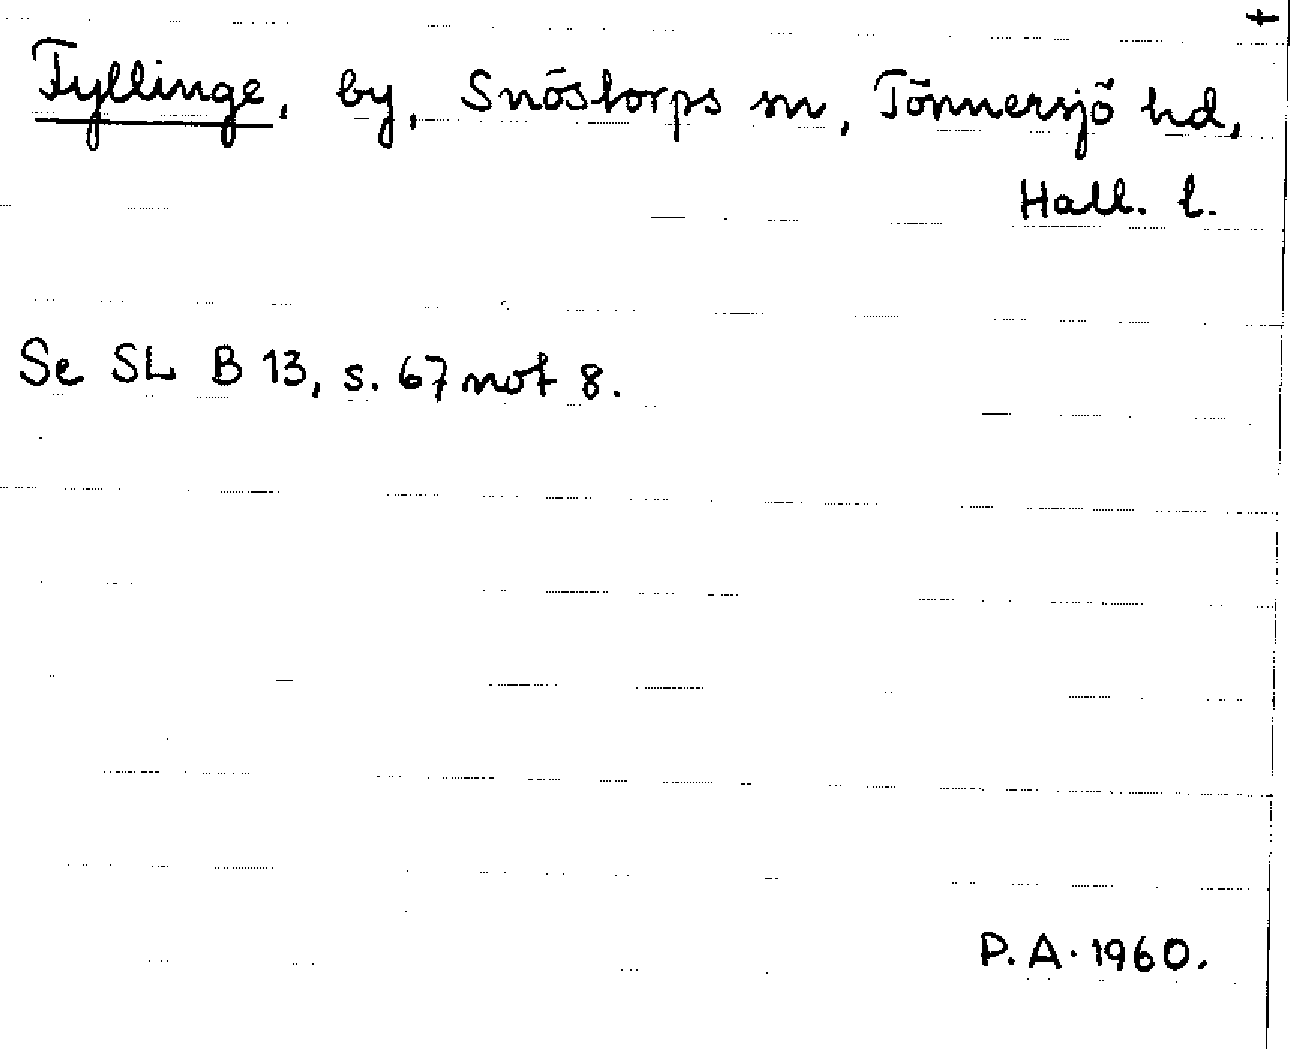 t
Fyllinge, by, Snöstorps sn, Tönnersjö hd,
Hall. l.
Se SL B 13, s. 67 not 8.
P. A. 1960.